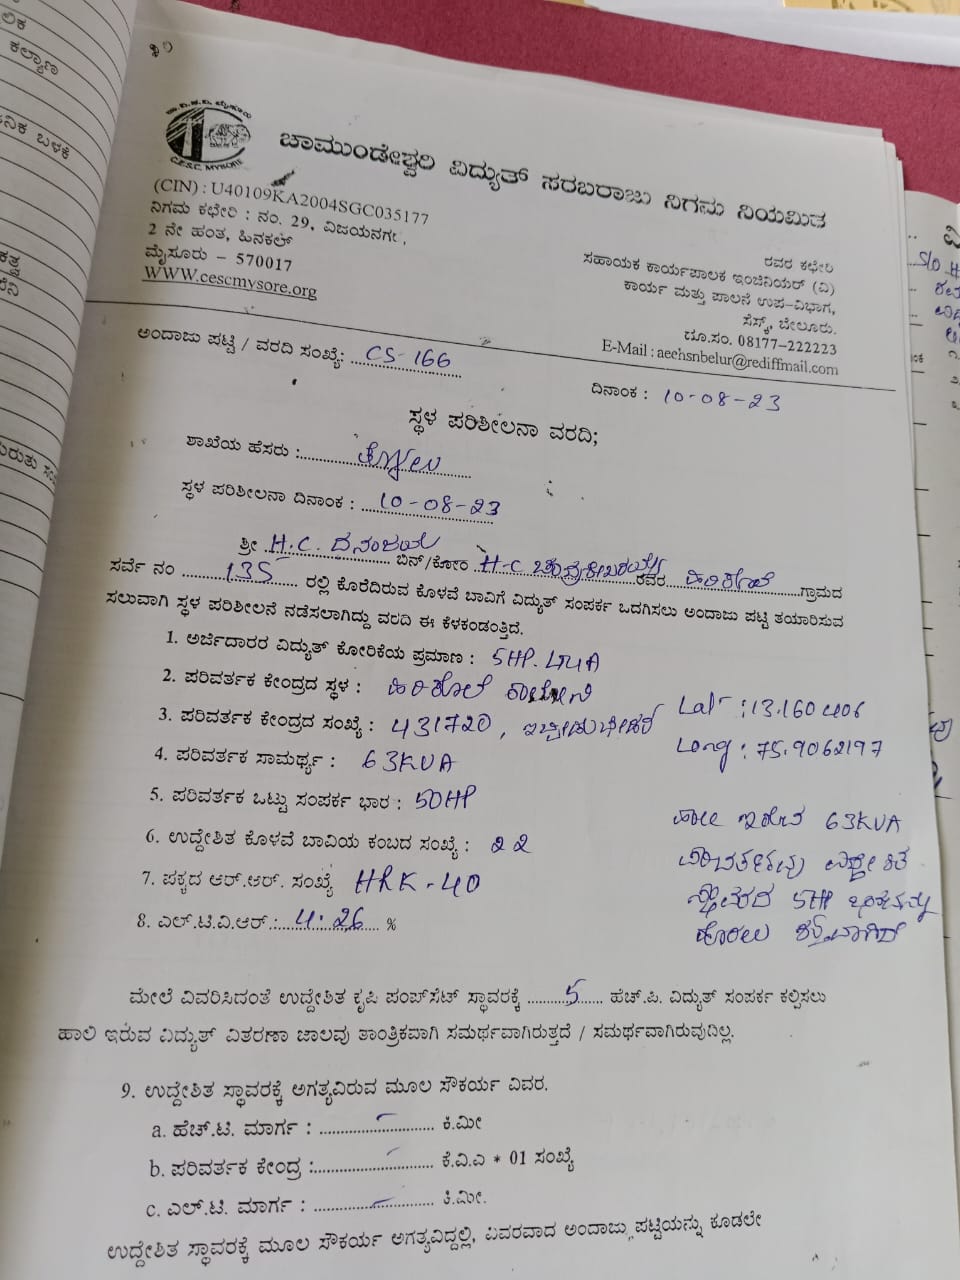 ಲಿಕ
ಕಲ್ಯಾಣ
ನಿಕ ಬಳಕೆ
C.E.S.C. MYSORE
ಚಾಮುಂಡೇಶ್ವರಿ ವಿದ್ಯುತ್ ಸರಬರಾಜು ನಿಗಮ ನಿಯಮಿತ
(CIN) : U40109KA2004SGC035177
ನಿಗಮ ಕಛೇರಿ : ನಂ. 29, ವಿಜಯನಗರ,
2 ನೇ ಹಂತ, ಹಿನಕಲ್
ಮೈಸೂರು – 570017
WWW.cescmysore.org
ರವರ ಕಛೇರಿ
ಸಹಾಯಕ ಕಾರ್ಯಪಾಲಕ ಇಂಜಿನಿಯರ್ (ವಿ)
ಕಾರ್ಯ ಮತ್ತು ಪಾಲನೆ ಉಪ-ವಿಭಾಗ,
ಸೆಸ್ಕ್, ಬೇಲೂರು.
ದೂ.ಸಂ. 08177-222223
E-Mail : aeehsnbelur@rediffmail.com
ಅಂದಾಜು ಪಟ್ಟಿ / ವರದಿ ಸಂಖ್ಯೆ: CS-166
ದಿನಾಂಕ : 10-08-23
ಸ್ಥಳ ಪರಿಶೀಲನಾ ವರದಿ;
ಶಾಖೆಯ ಹೆಸರು :
ಸ್ಥಳ ಪರಿಶೀಲನಾ ದಿನಾಂಕ : 10-08-23
ಶ್ರೀ H.C. ಧನಂಜಯ ಬಿನ್/ಕೋಂ H-C ರವರ ಗ್ರಾಮದ
ಸರ್ವೆ ನಂ 135 ರಲ್ಲಿ ಕೊರೆದಿರುವ ಕೊಳವೆ ಬಾವಿಗೆ ವಿದ್ಯುತ್ ಸಂಪರ್ಕ ಒದಗಿಸಲು ಅಂದಾಜು ಪಟ್ಟಿ ತಯಾರಿಸುವ
ಸಲುವಾಗಿ ಸ್ಥಳ ಪರಿಶೀಲನೆ ನಡೆಸಲಾಗಿದ್ದು ವರದಿ ಈ ಕೆಳಕಂಡಂತ್ತಿದೆ.
1. ಅರ್ಜಿದಾರರ ವಿದ್ಯುತ್ ಕೋರಿಕೆಯ ಪ್ರಮಾಣ : 5HP.
2. ಪರಿವರ್ತಕ ಕೇಂದ್ರದ ಸ್ಥಳ :
3. ಪರಿವರ್ತಕ ಕೇಂದ್ರದ ಸಂಖ್ಯೆ : 431720,
Lat :13.160406
Long : 75.9062197
4. ಪರಿವರ್ತಕ ಸಾಮರ್ಥ್ಯ : 63KVA
5. ಪರಿವರ್ತಕ ಒಟ್ಟು ಸಂಪರ್ಕ ಭಾರ : 50HP
6. ಉದ್ದೇಶಿತ ಕೊಳವೆ ಬಾವಿಯ ಕಂಬದ ಸಂಖ್ಯೆ : 22
7. ಪಕ್ಕದ ಆರ್.ಆರ್. ಸಂಖ್ಯೆ HRK-40
8. ಎಲ್.ಟಿ.ವಿ.ಆರ್.: 4.26 %
ಹಾಲಿ ಇರುವ 63KVA
ಪರಿವರ್ತಕವು ಉದ್ದೇಶಿತ
ಸ್ಥಾವರದ 5HP
ಮೇಲೆ ವಿವರಿಸಿದಂತೆ ಉದ್ದೇಶಿತ ಕೃಷಿ ಪಂಪ್‌ಸೆಟ್ ಸ್ಥಾವರಕ್ಕೆ 5 ಹೆಚ್.ಪಿ. ವಿದ್ಯುತ್ ಸಂಪರ್ಕ ಕಲ್ಪಿಸಲು
ಹಾಲಿ ಇರುವ ವಿದ್ಯುತ್ ವಿತರಣಾ ಜಾಲವು ತಾಂತ್ರಿಕವಾಗಿ ಸಮರ್ಥವಾಗಿರುತ್ತದೆ / ಸಮರ್ಥವಾಗಿರುವುದಿಲ್ಲ.
9. ಉದ್ದೇಶಿತ ಸ್ಥಾವರಕ್ಕೆ ಅಗತ್ಯವಿರುವ ಮೂಲ ಸೌಕರ್ಯ ವಿವರ.
a. ಹೆಚ್.ಟಿ. ಮಾರ್ಗ : ಕಿ.ಮೀ
b. ಪರಿವರ್ತಕ ಕೇಂದ್ರ : ಕೆ.ವಿ.ಎ * 01 ಸಂಖ್ಯೆ
c. ಎಲ್.ಟಿ. ಮಾರ್ಗ : ಕಿ.ಮೀ.
ಉದ್ದೇಶಿತ ಸ್ಥಾವರಕ್ಕೆ ಮೂಲ ಸೌಕರ್ಯ ಅಗತ್ಯವಿದ್ದಲ್ಲಿ, ವಿವರವಾದ ಅಂದಾಜು ಪಟ್ಟಿಯನ್ನು ಕೂಡಲೇ